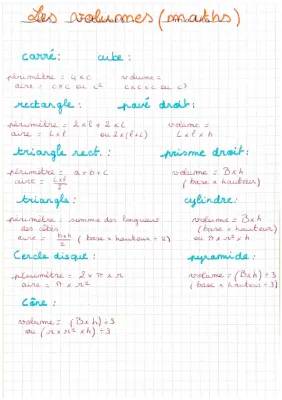 Les volumes (maths)
carré : cube :
périmètre = 4 x c volume =
aire = c x c ou c² c x c x c ou c³
rectangle : pavé droit :
périmètre = 2 x l + 2 x L volume =
aire = L x l ou 2 x (l + L) L x l x h
triangle rect. : prisme droit :
périmètre = a + b + c volume = B x h
aire = L x l / 2 (base x hauteur)
triangle : cylindre :
périmètre : somme des longueurs volume = B x h
des côtés (base x hauteur)
aire = b x h / 2 (base x hauteur ÷ 2) ou π x r² x h
Cercle disque : pyramide :
périmètre = 2 x π x r volume = (B x h) ÷ 3
aire = π x r² (base x hauteur ÷ 3)
Cône :
volume = (B x h) ÷ 3
ou (π x r² x h) ÷ 3